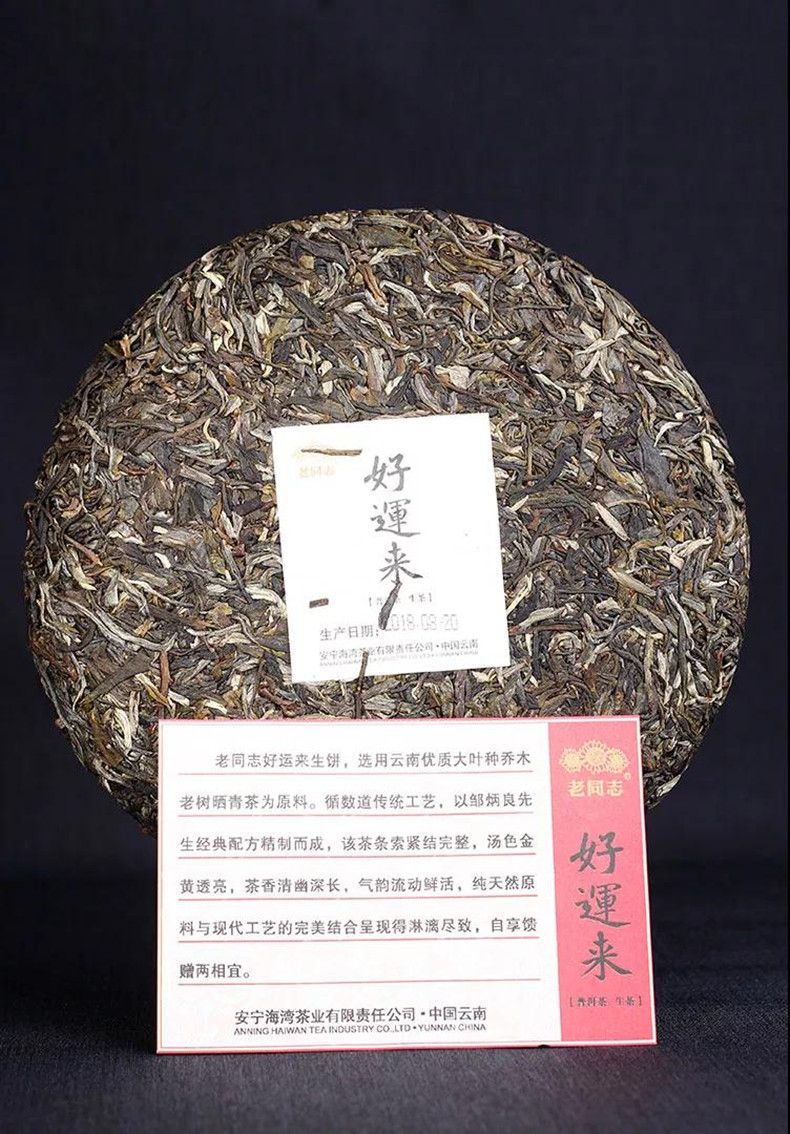 老同志
好
運
来
【普洱茶 生茶】
生产日期：2018.09-20
安宁海湾茶业有限责任公司·中国云南
老同志好运来生饼，选用云南优质大叶种乔木
老树晒青茶为原料。循数道传统工艺，以邹炳良先
生经典配方精制而成，该茶条索紧结完整，汤色金
黄透亮，茶香清幽深长，气韵流动鲜活，纯天然原
料与现代工艺的完美结合呈现得淋漓尽致，自享馈
赠两相宜。
安宁海湾茶业有限责任公司·中国云南
ANNING HAIWAN TEA INDUSTRY CO.,LTD·YUNNAN CHINA
老同志®
好
運
来
[普洱茶 生茶]